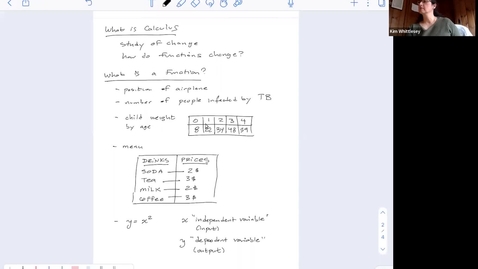 What is Calculus
study of change
How do functions change?
What is a Function?
- position of airplane
- number of people infected by TB
- child weight by age
0 1 2 3 4
8 34 48 59
- menu
DRINKS PRICES
SODA 2$
TEA 3$
MILK 2$
COFFEE 3$
- y = x² x "independent variable"
(input)
y "dependent variable"
(output)
Kim Whittlesey